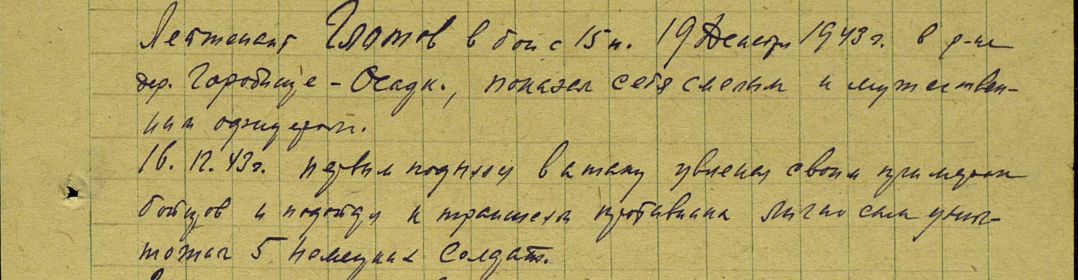 Лейтенант Глотов в бой с 15 п. 19 Декабря 1943 г. в р-не
дер. Городище - Осадк., показал себя смелым и мужествен-
ным офицером.
16.12.43г. первым поднялся в атаку увлекая своим примером
бойцов и подойдя к траншеям противника лично сам унич-
тожил 5 немецких солдат.